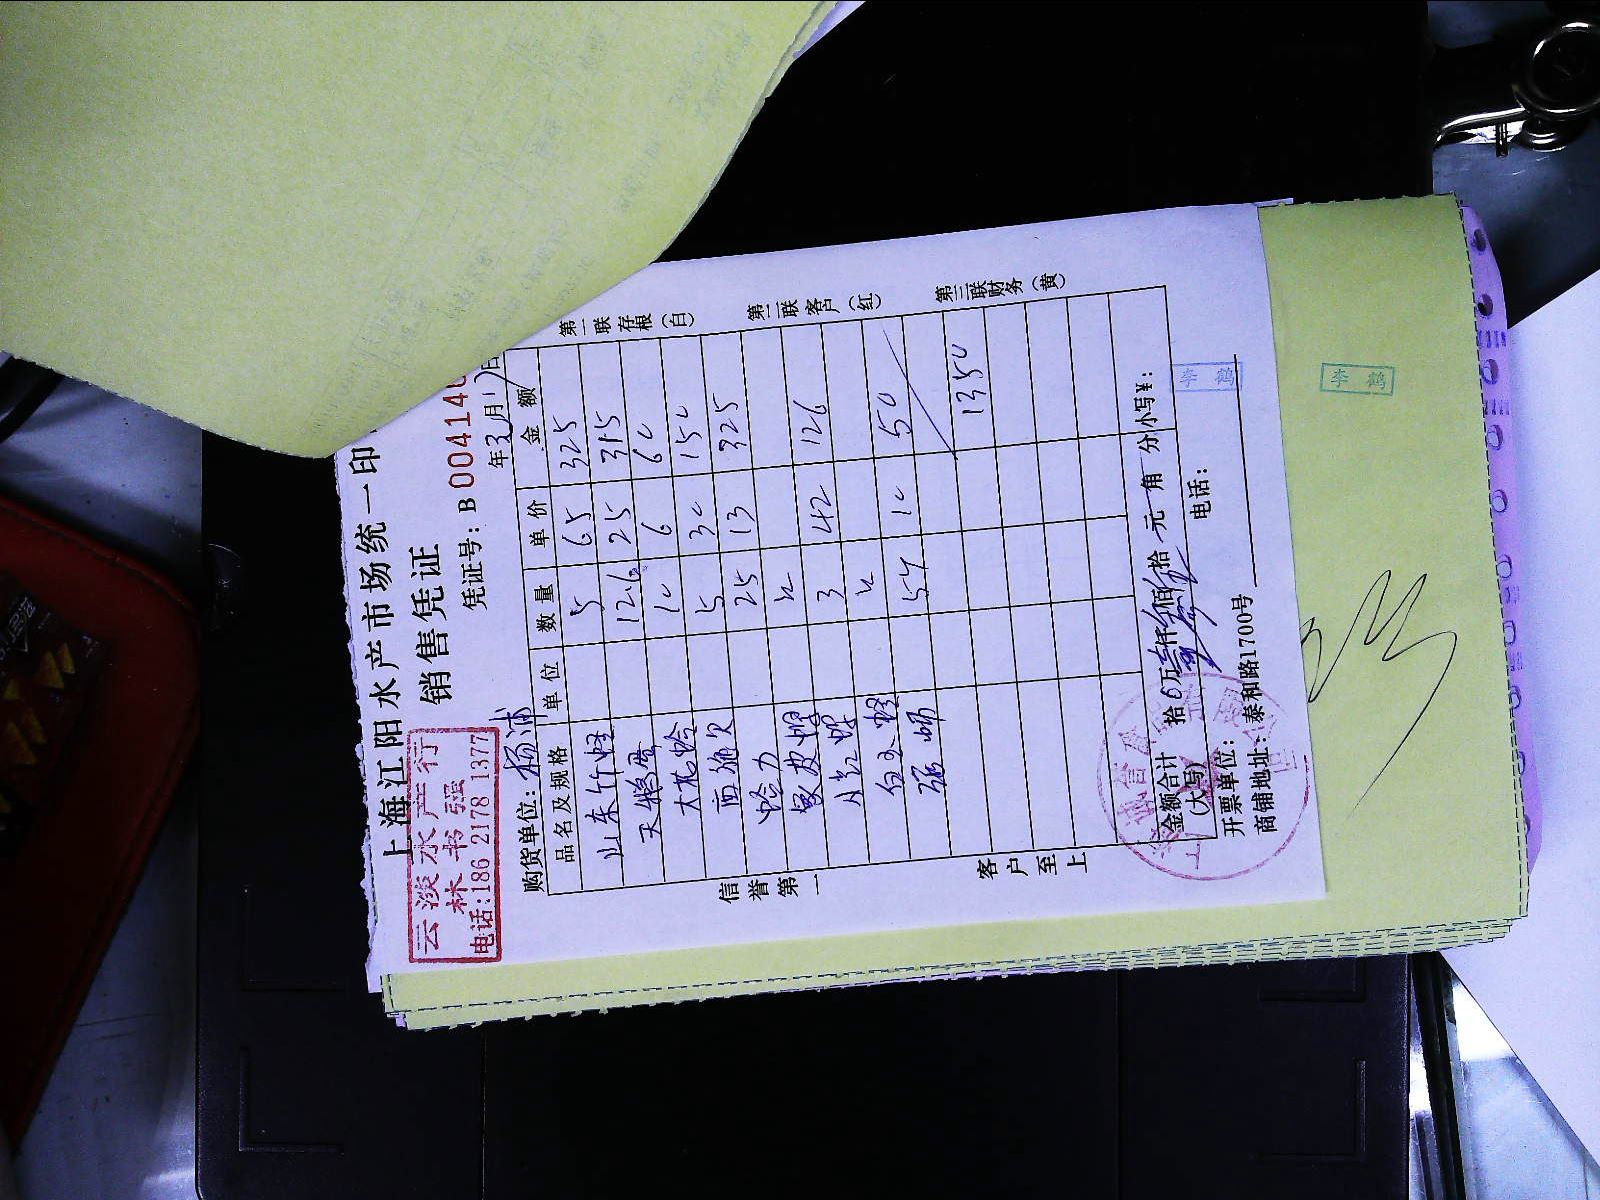 上海江阳水产市场统一印
销售凭证
云淡水产行
林书强
电话:186 2178 1377
凭证号: B 00414
购货单位: 杨浦
年3月17日
品名及规格 单位 数量 单价 金额
山东竹蛏 5 65 325
天鹅蛋 12.6 25 315
大花蛤 10 6 60
面包 5 30 150
蛤力 25 13 325
3 42 126
白玉蛏 5斤 10 50
1350
金额合计(大写) 拾 万 仟 佰 拾 元 角 分 小写¥:
开票单位: 电话:
商铺地址: 泰和路1700号
信誉第一
客户至上
第一联存根(白)
第二联客户(红)
第三联财务(黄)
李鹤
李鹤